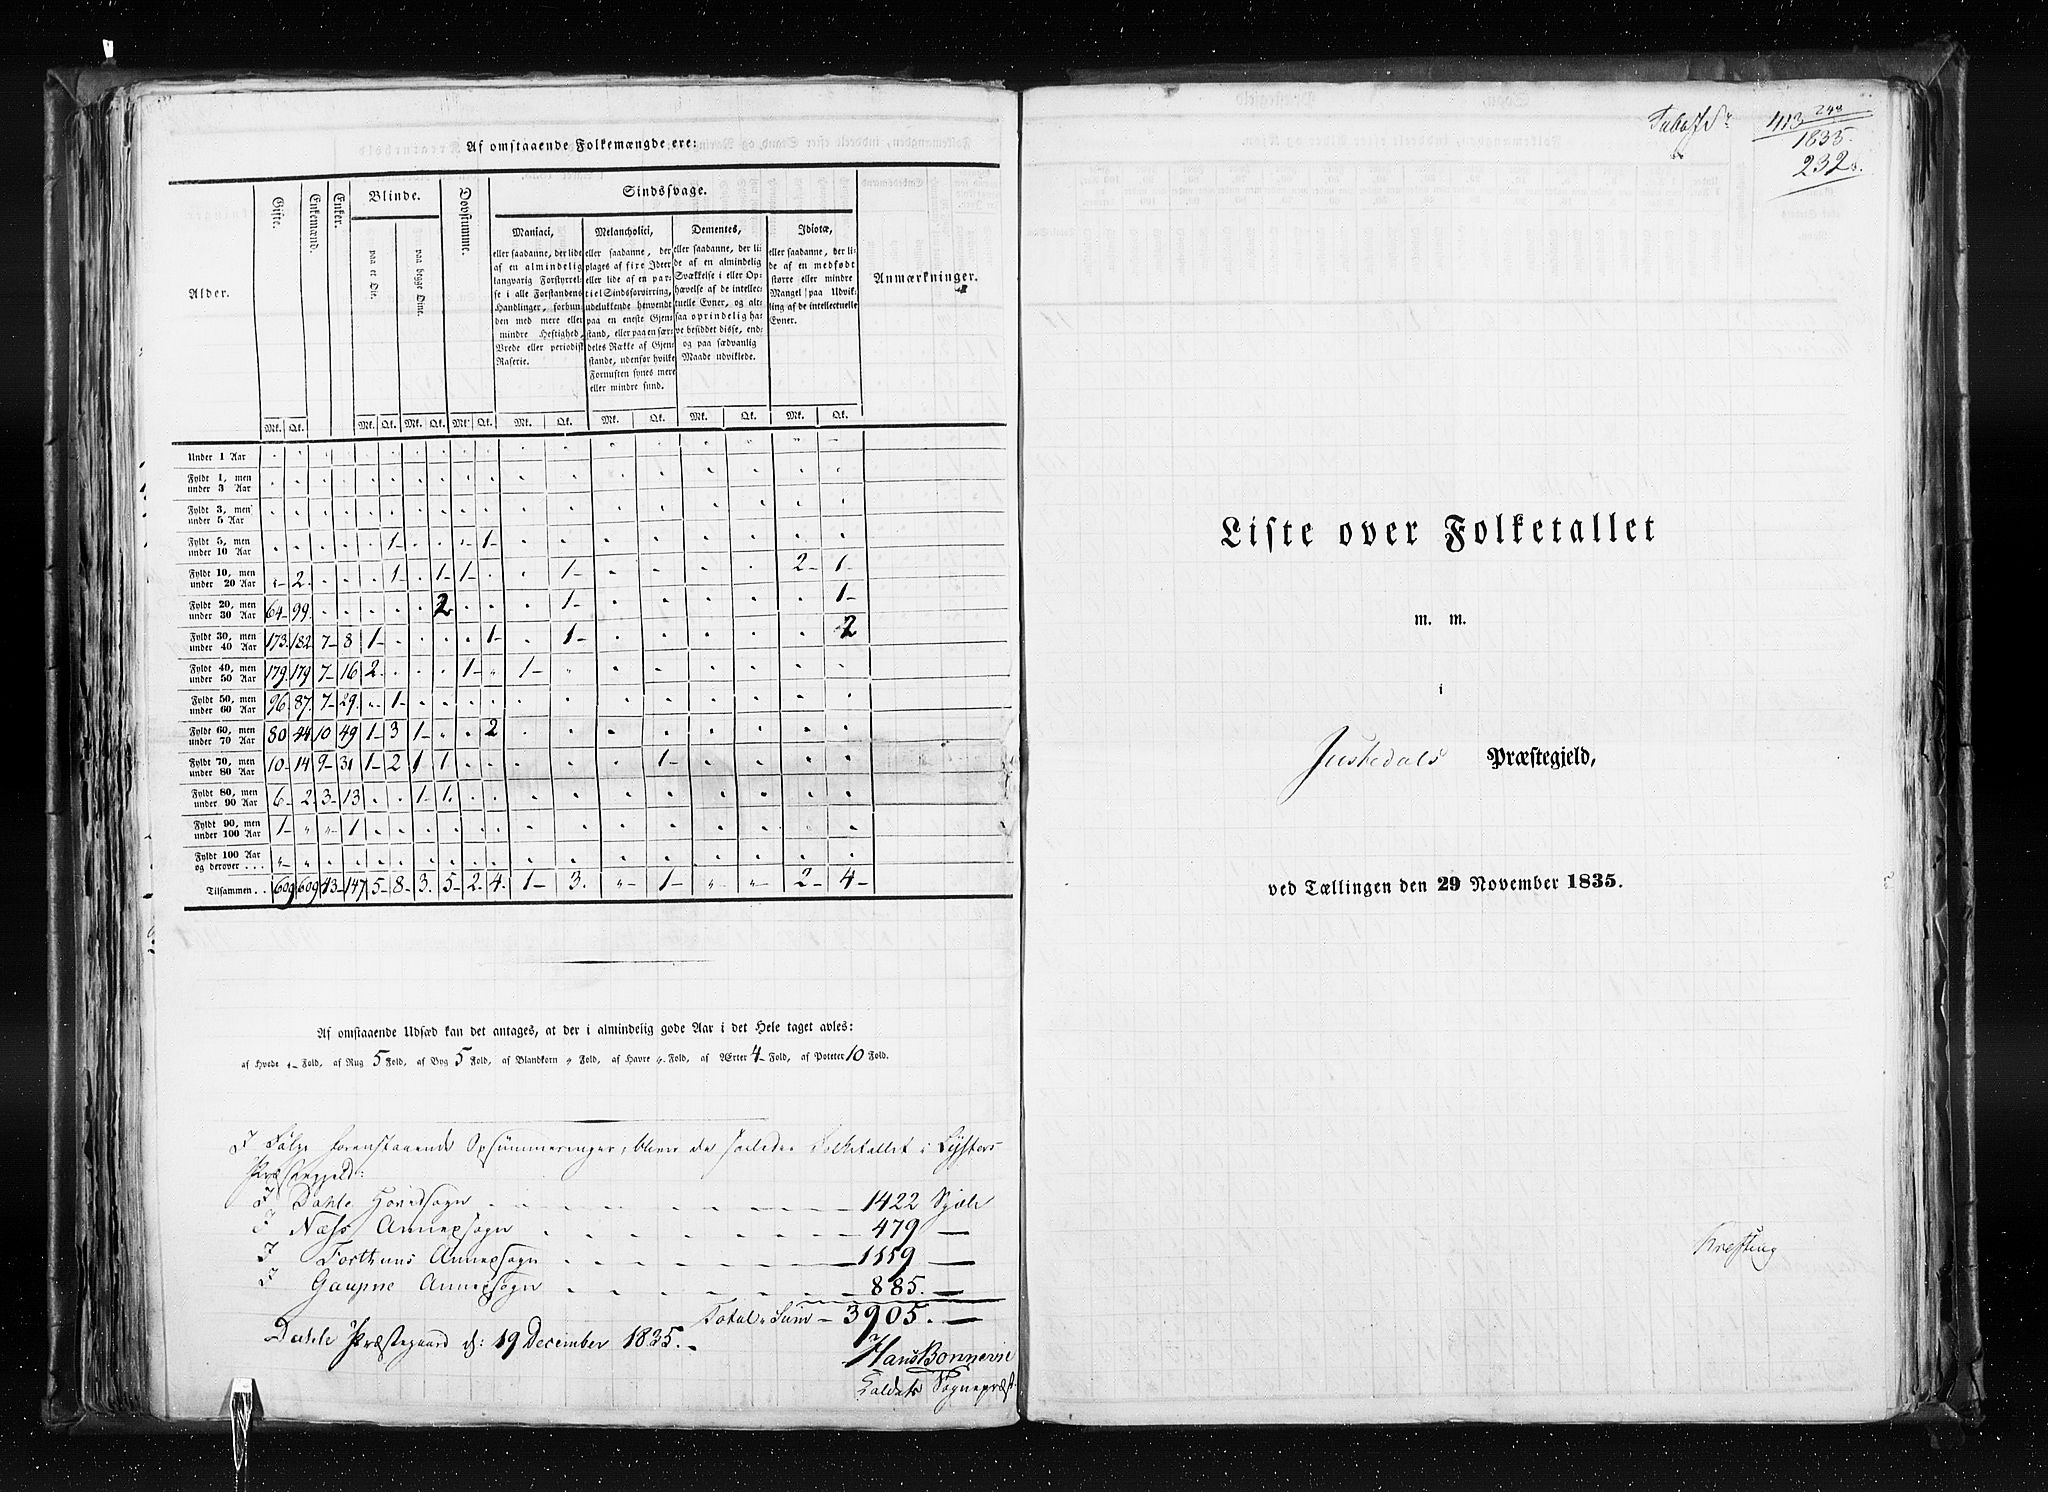 Af omstaaende Folkemængde ere:
Alder.
Gifte.
Enkemænd.
Enker.
Blinde.
paa et Øie.
paa begge Øine.
Døvstumme.
Sindssvage.
Maniaci,
eller saadanne, der lide
af en almindelig
langvarig Forstyrrel-
se i alle Forstandens
Handlinger, forbun-
den med mere eller
mindre Heftighed,
Vrede eller periodisk
Raserie.
Melancholici,
eller saadanne, der
plages af fire Ideer
eller lide af en par-
tiel Sindsforvirring,
udelukkende henvendt
paa en eneste Gjen-
stand, eller paa en sær-
deles Række af Gjen-
stande, udenfor hvilke
Fornuften synes mere
eller mindre sund.
Dementes,
eller saadanne, der li-
de af en almindelig
Svækkelse i eller Op-
hævelse af de intellec-
tuelle Evner, og alt-
saa oprindelig ha-
ve besiddet disse, end-
og paa sædvanlig
Maade udviklede.
Idiotæ,
eller saadanne, der li-
de af en medfødt
større eller mindre
Mangel paa Udvik-
ling af de intellectuelle
Evner.
Anmærkninger.
Mk. Qk. Mk. Qk. Mk. Qk. Mk. Qk. Mk. Qk. Mk. Qk. Mk. Qk. Mk. Qk.
Under 1 Aar
Fyldt 1, men
under 3 Aar
Fyldt 3, men
under 5 Aar
Fyldt 5, men
under 10 Aar 1- 1-
Fyldt 10, men
under 20 Aar 2. 1- 1- 1- 1- 2- 1-
Fyldt 20, men
under 30 Aar 64- 99. 2 1- 1-
Fyldt 30, men
under 40 Aar 173. 182 7- 8 1- 1- 1- 2
Fyldt 40, men
under 50 Aar 179. 179 7- 16 2. 1- 1-
Fyldt 50, men
under 60 Aar 96. 87. 7- 29. 1-
Fyldt 60, men
under 70 Aar 80 44 10 49 1- 3 1- 2
Fyldt 70, men
under 80 Aar 10- 14 9- 31 1- 2 1 1. 1-
Fyldt 80, men
under 90 Aar 6- 2. 3- 13 1 1.
Fyldt 90, men
under 100 Aar 1- 1
Fyldt 100 Aar
og derover . . .
Tilsammen . . 609 609 43- 147 5- 8- 3. 5- 2. 4. 1- 3. 1- 2- 4-
Af omstaaende Udsæd kan det antages, at der i almindelig gode Aar i det Hele taget avles:
af Hvede „- Fold, af Rug 5 Fold, af Byg 5 Fold, af Blandkorn „ Fold, af Havre „. Fold, af Ærter 4- Fold, af Poteter 10 Fold.
I Følge foranstaaende Opsummeringer, bliver da saaledes Folketallet i Lysters
Præstegjeld:
I Dahle Hovedsogn 1422 Sjæle
I Næss Annexsogn 479 —
I Forthuns Annexsogn 1119 —
I Gaupne Annexsogn 885. —
Total-Sum - 3905. —
Dahle Præstegaard d: 19 December 1835. -
Hans Bonnevie
Sognepræst
413 248
1835.
232
Liste over Folketallet
m. m.
i
Justedals Præstegjeld,
ved Tællingen den 29 November 1835.